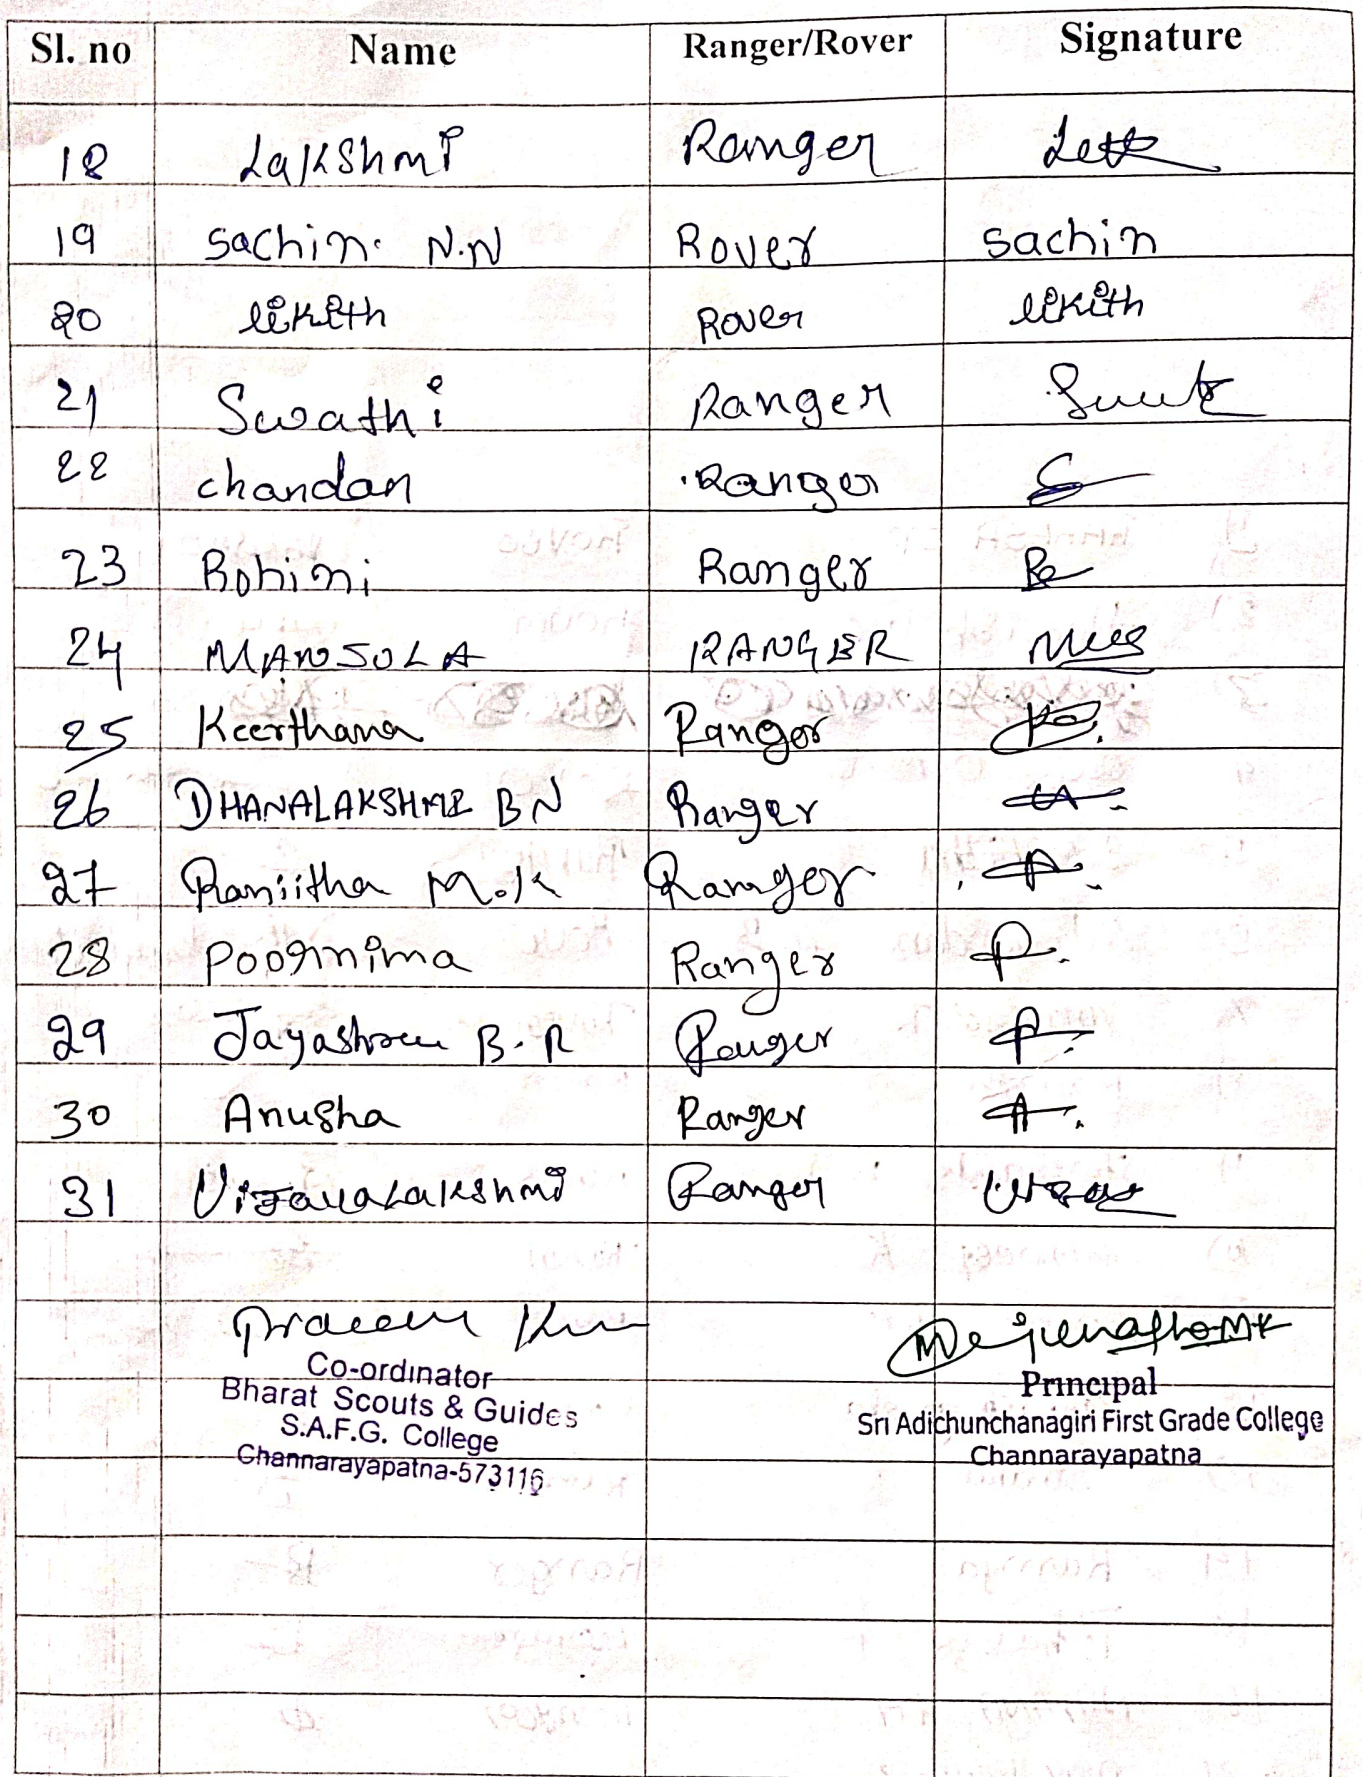 Sl. no Name Ranger/Rover Signature
18 Lakshmi Ranger
19 Sachin. N.N Rover Sachin
20 likith Rover likith
21 Swathi Ranger
22 chandan Ranger
23 Rohini Ranger
24 MANJULA RANGER
25 Keerthana Ranger
26 DHANALAKSHMI BN Ranger
27 Ranjitha M.K Ranger
28 Poornima Ranger P.
29 Jayashree B.R Ranger
30 Anusha Ranger A.
31 VijayaLakshmi Ranger
Co-ordinator
Bharat Scouts & Guides
S.A.F.G. College
Channarayapatna-573116
Manjunatha MK
Principal
Sri Adichunchanagiri First Grade College
Channarayapatna